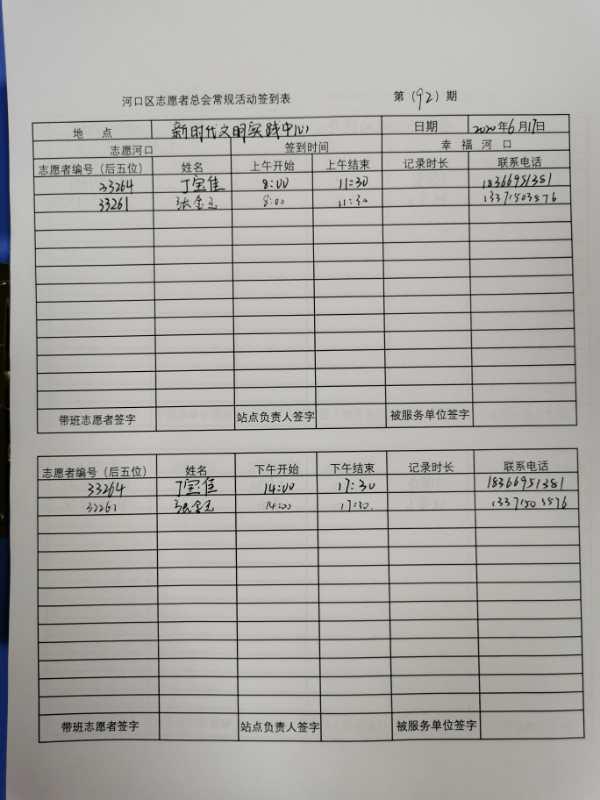 河口区志愿者总会常规活动签到表 第（92）期
地 点 新时代文明实践中心 日期 2020年6月17日
志愿河口 签到时间 幸 福 河 口
志愿者编号（后五位） 姓名 上午开始 上午结束 记录时长 联系电话
33264 丁宝佳 8:00 11:30 18366951381
33261 张金玉 8:00 11:30 13371503576
带班志愿者签字 站点负责人签字 被服务单位签字
志愿者编号（后五位） 姓名 下午开始 下午结束 记录时长 联系电话
33264 丁宝佳 14:00 17:30 18366951381
33261 张金玉 14:00 17:30. 13371503576
带班志愿者签字 站点负责人签字 被服务单位签字